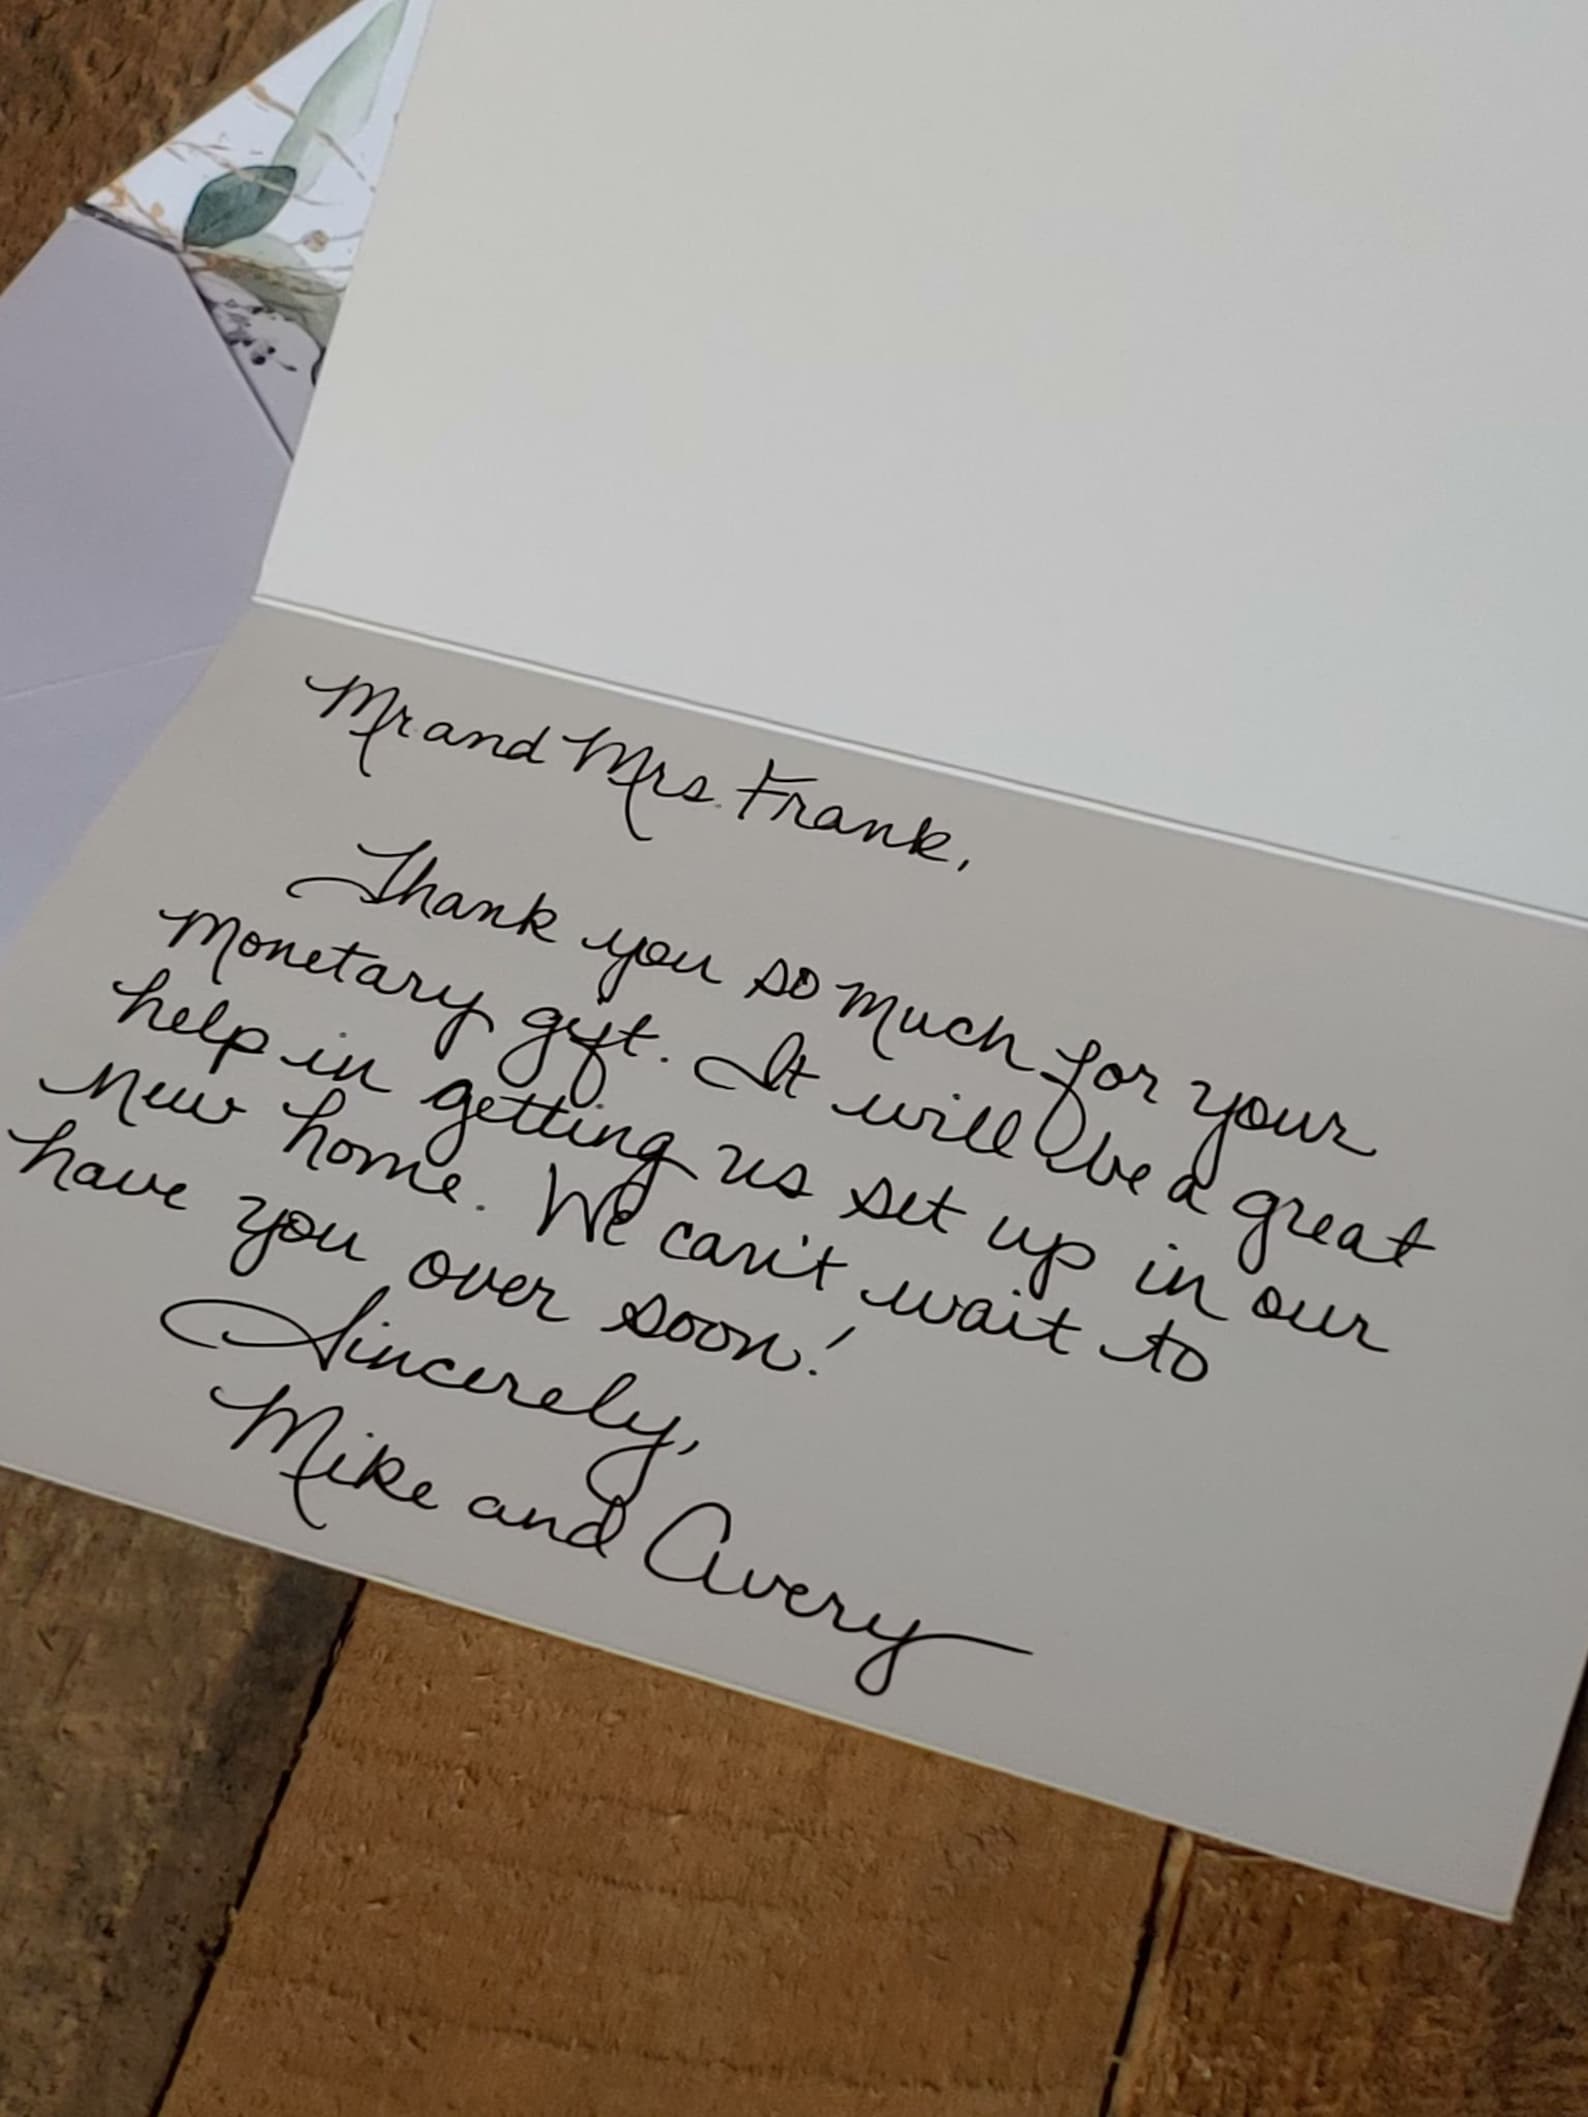 Mr. and Mrs. Frank,
Thank you so much for your
monetary gift. It will be a great
help in getting us set up in our
new home. We can't wait to
have you over soon!
Sincerely,
Mike and Avery